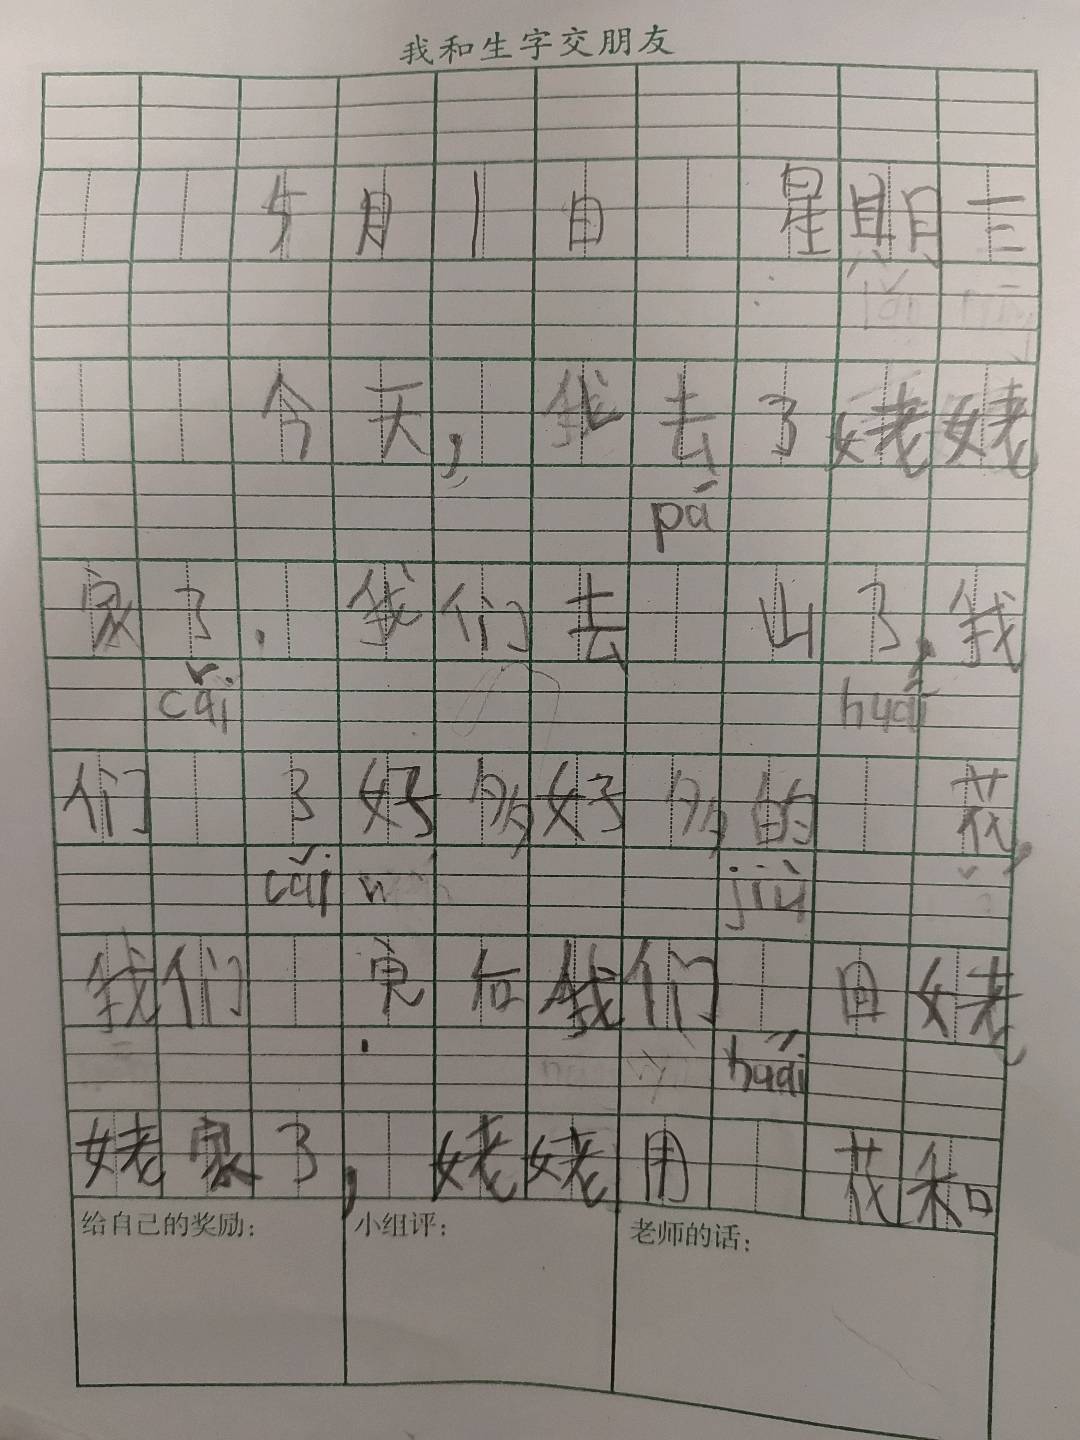 我和生字交朋友
5月1日 星期三
今天,我去了姥姥
pá
家了.我们去 山了,我
cǎi huái
们 了好多好多的 花,
cǎi jiù
我们 完后我们 回姥
huái
姥家了,姥姥用 花和
给自己的奖励: 小组评: 老师的话: